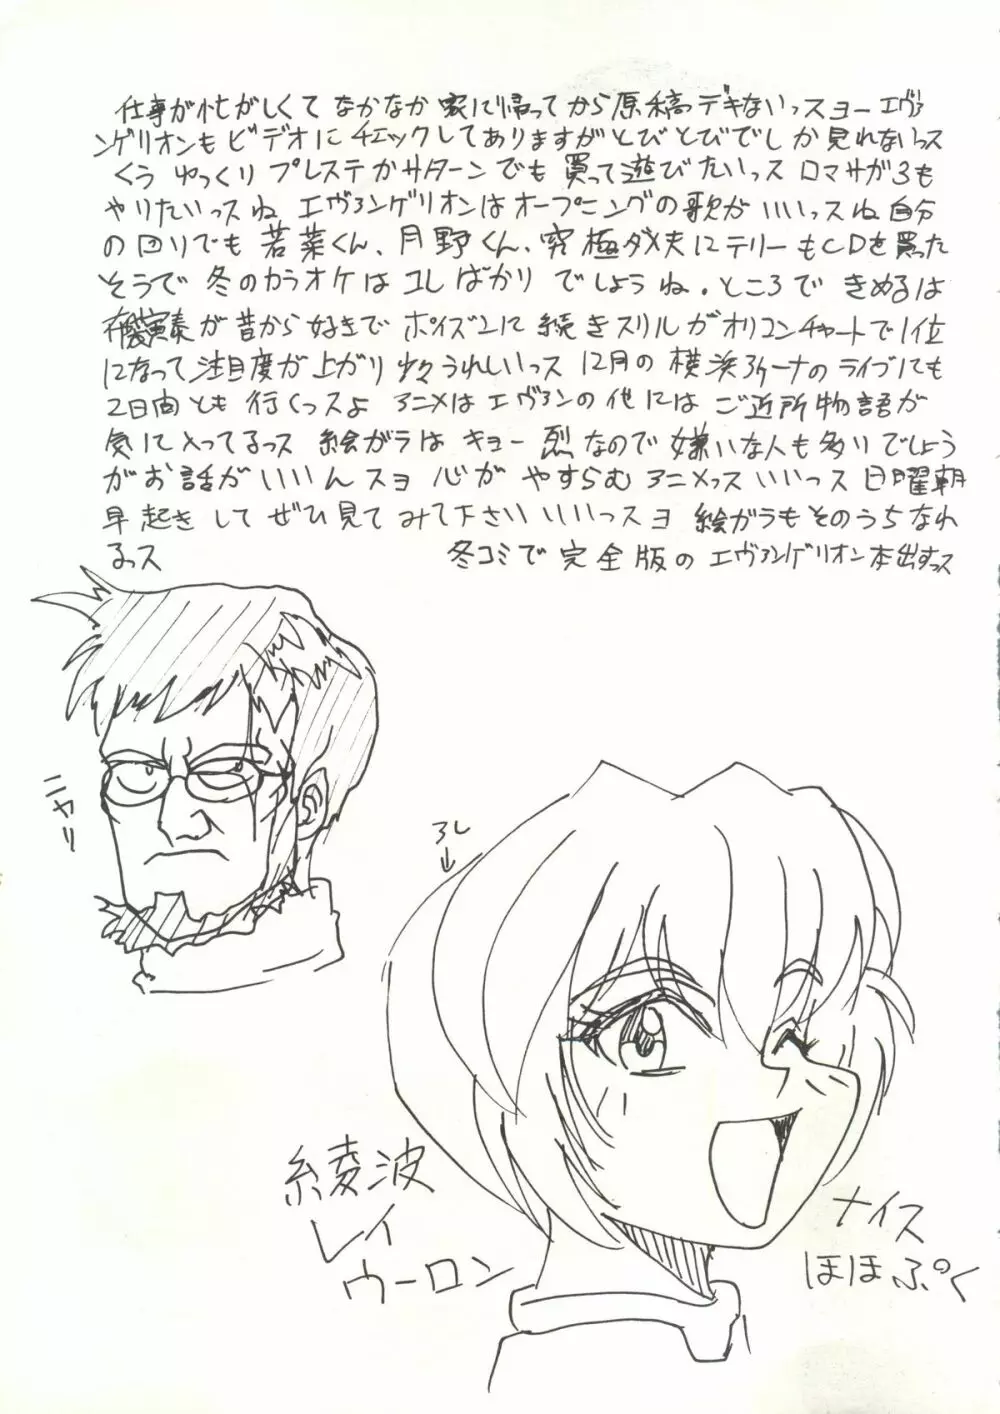 仕事が忙がしくて なかなか 家に帰ってから原稿デキないっスョー エヴァ
ンゲリオンも ビデオに チェックしてありますが とびとびでしか見れないっス
くう ゆっくり プレステかサターンでも 買って遊びたいっス ロマサガ3も
やりたいっスね エヴァンゲリオンはオープニングの歌が いいっスね 自分
の回りでも 若菜くん、月野くん、究極ダメ夫にテリーもCDを買った
そうで 冬のカラオケは コレばかり でしょうね。ところで きめるは
が昔から好きで ポイズンに 続きスリルがオリコンチャートで1位
になって注目度が上がり 少々うれしいっス 12月の 横浜アリーナのライブにも
2日間とも 行くっスよ アニメは エヴァンの他には ご近所物語が
気に入ってるっス 絵ガラは キョー烈なので 嫌いな人も多いでしょう
がお話がいいんスョ 心が やすらむ アニメっス いいっス 日曜朝
早起き して ぜひ見て みて下さい いいっスョ 絵ガラもそのうちなれ
るっス
冬コミで 完全版の エヴァンゲリオン本出すっス
ニヤリ
アレ
綾波
レイ
ウーロン
ナイス
ほほぷく